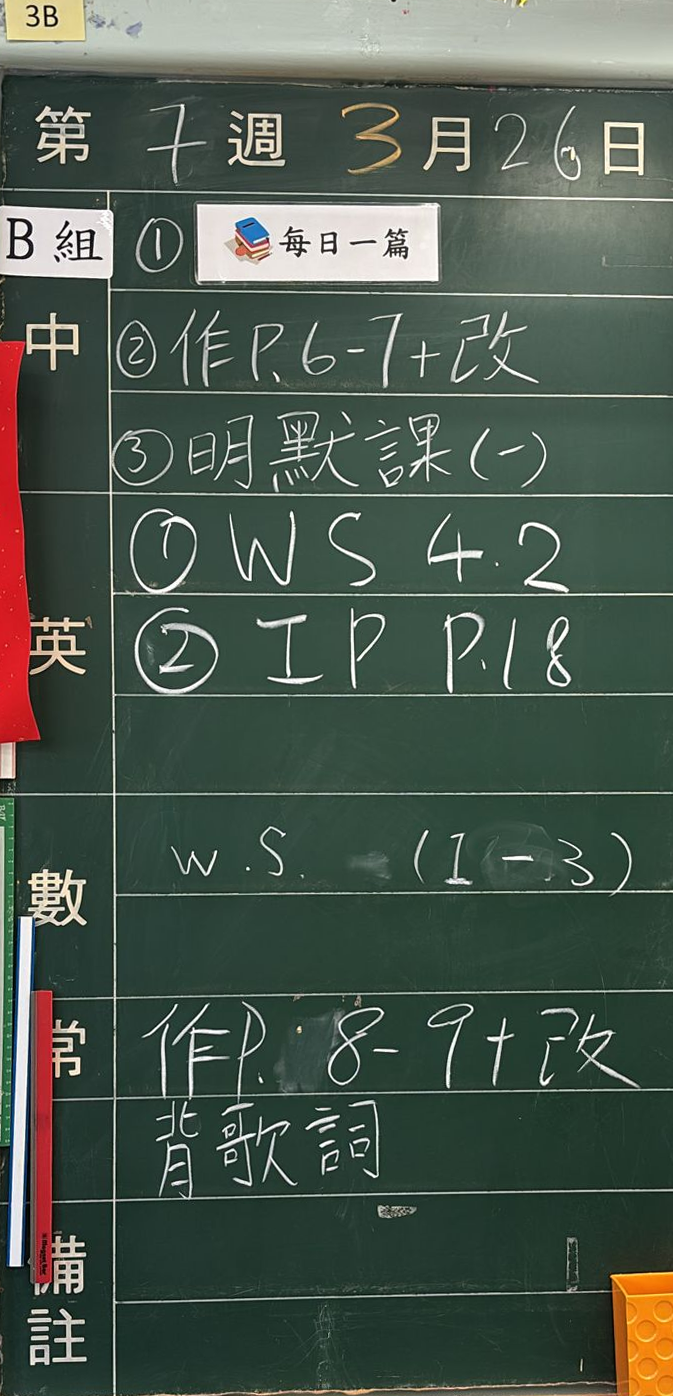 3B
第 7 週 3 月 26 日
B 組 ① 每日一篇
中 ② 作 P. 6-7 + 改
③ 明默課(一)
① WS 4.2
英 ② IP P.18
數 W.S. (1-3)
常 作 P. 8-9 + 改
背歌詞
備註